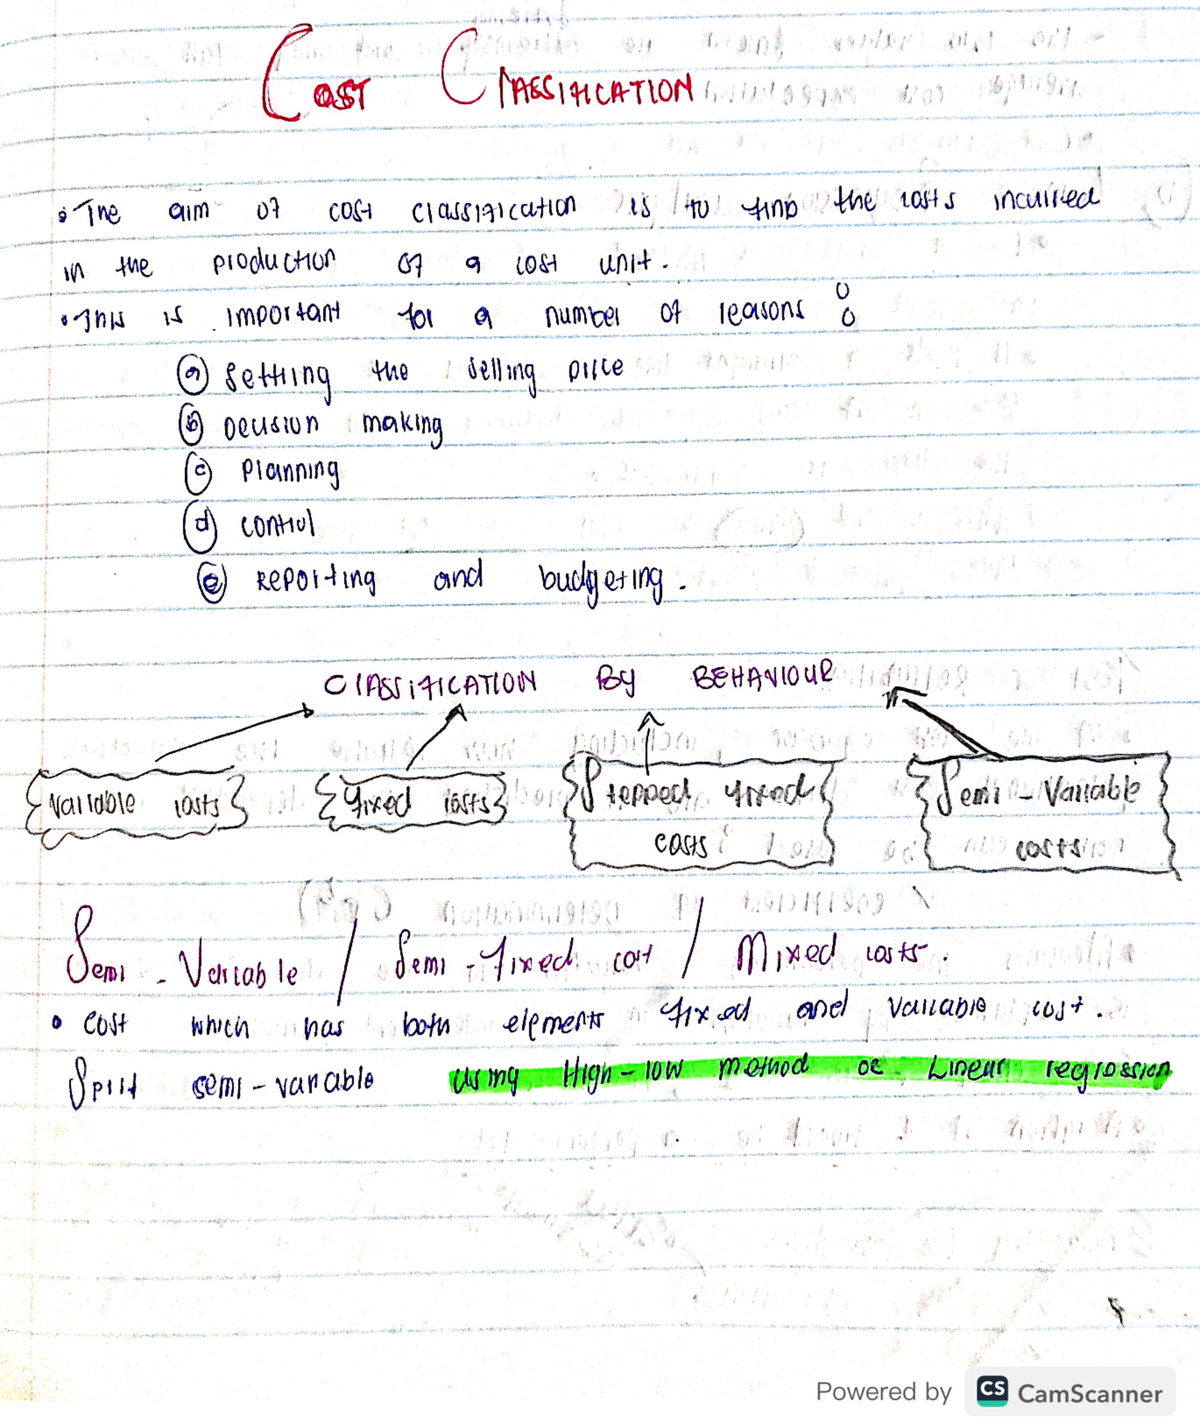 COST CLASSIFICATION
• The aim of cost classification is to find the costs incurred
in the production of a cost unit.
• This is important for a number of reasons :
(a) Setting the selling price
(b) Decision making
(c) Planning
(d) control
(e) Reporting and budgeting.
CLASSIFICATION By BEHAVIOUR
Variable costs
Fixed costs
Stepped fixed
costs
Semi - Variable
costs
Semi - Variable / Semi - Fixed cost / Mixed costs.
• Cost which has both elements fixed and variable cost.
Split semi - variable using High - low method or Linear regression
Powered by CS CamScanner